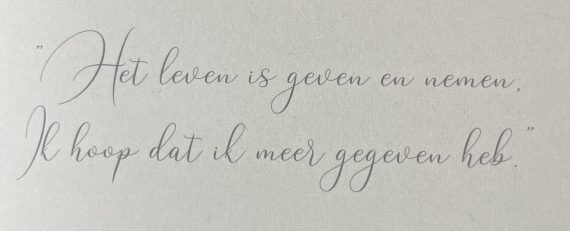 "Het leven is geven en nemen.
Ik hoop dat ik meer gegeven heb."